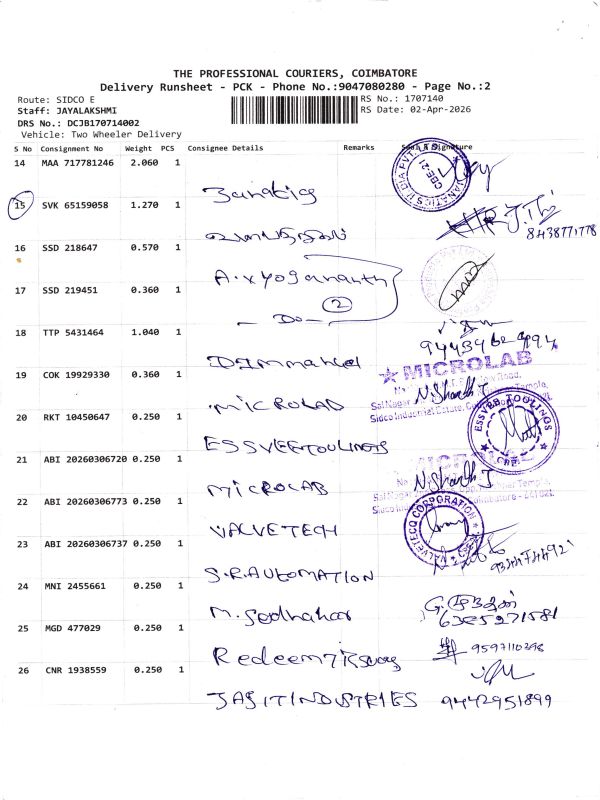 THE PROFESSIONAL COURIERS, COIMBATORE
Delivery Runsheet - PCK - Phone No.:9047080280 - Page No.:2
Route: SIDCO E
RS No.: 1707140
Staff: JAYALAKSHMI
RS Date: 02-Apr-2026
DRS No.: DCJB170714002
Vehicle: Two Wheeler Delivery
S No Consignment No Weight PCS Consignee Details Remarks Signature
14 MAA 717781246 2.060 1
15 SVK 65159058 1.270 1
J.Thi
8438771778
16 SSD 218647 0.570 1
A.V.Yogananth
17 SSD 219451 0.360 1
2
- Do -
18 TTP 5431464 1.040 1
D.Immanuel
19 COK 19929330 0.360 1
MICROLAB
MICROLAB
N.Sharath J
Sidco Industrial Estate,
20 RKT 10450647 0.250 1
ESSVEETOOLINGS
ESSVEE TOOLINGS
CBE
21 ABI 20260306720 0.250 1
MICROLAB
N.Sharath J
Coimbatore - 641 021.
22 ABI 20260306773 0.250 1
VALVETECH
VALVETECQ CORPORATION
23 ABI 20260306737 0.250 1
S.R.AUTOMATION
24 MNI 2455661 0.250 1
M.Sedhahar
6385971581
25 MGD 477029 0.250 1
9597110398
26 CNR 1938559 0.250 1
JASIT INDUSTRIES
9442951899